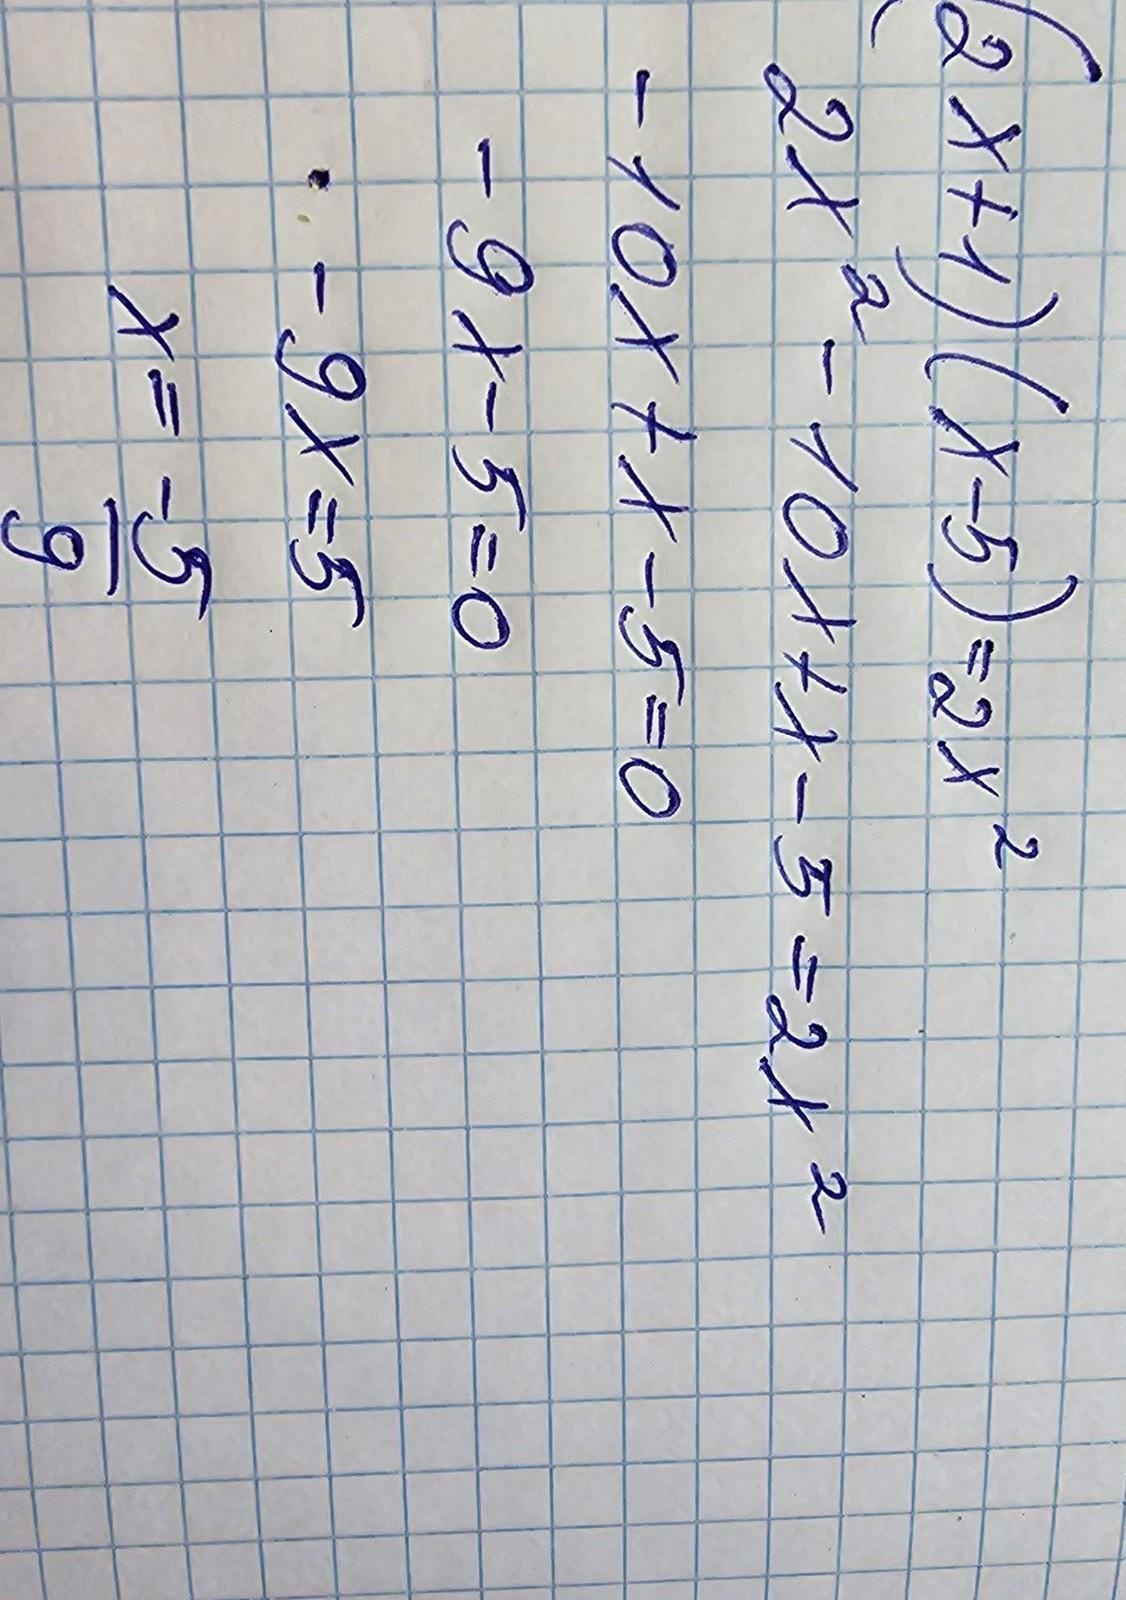 (2x+1)(x-5)=2x²
2x²-10x+x-5=2x²
-10x+x-5=0
-9x-5=0
-9x=5
x=-5/9